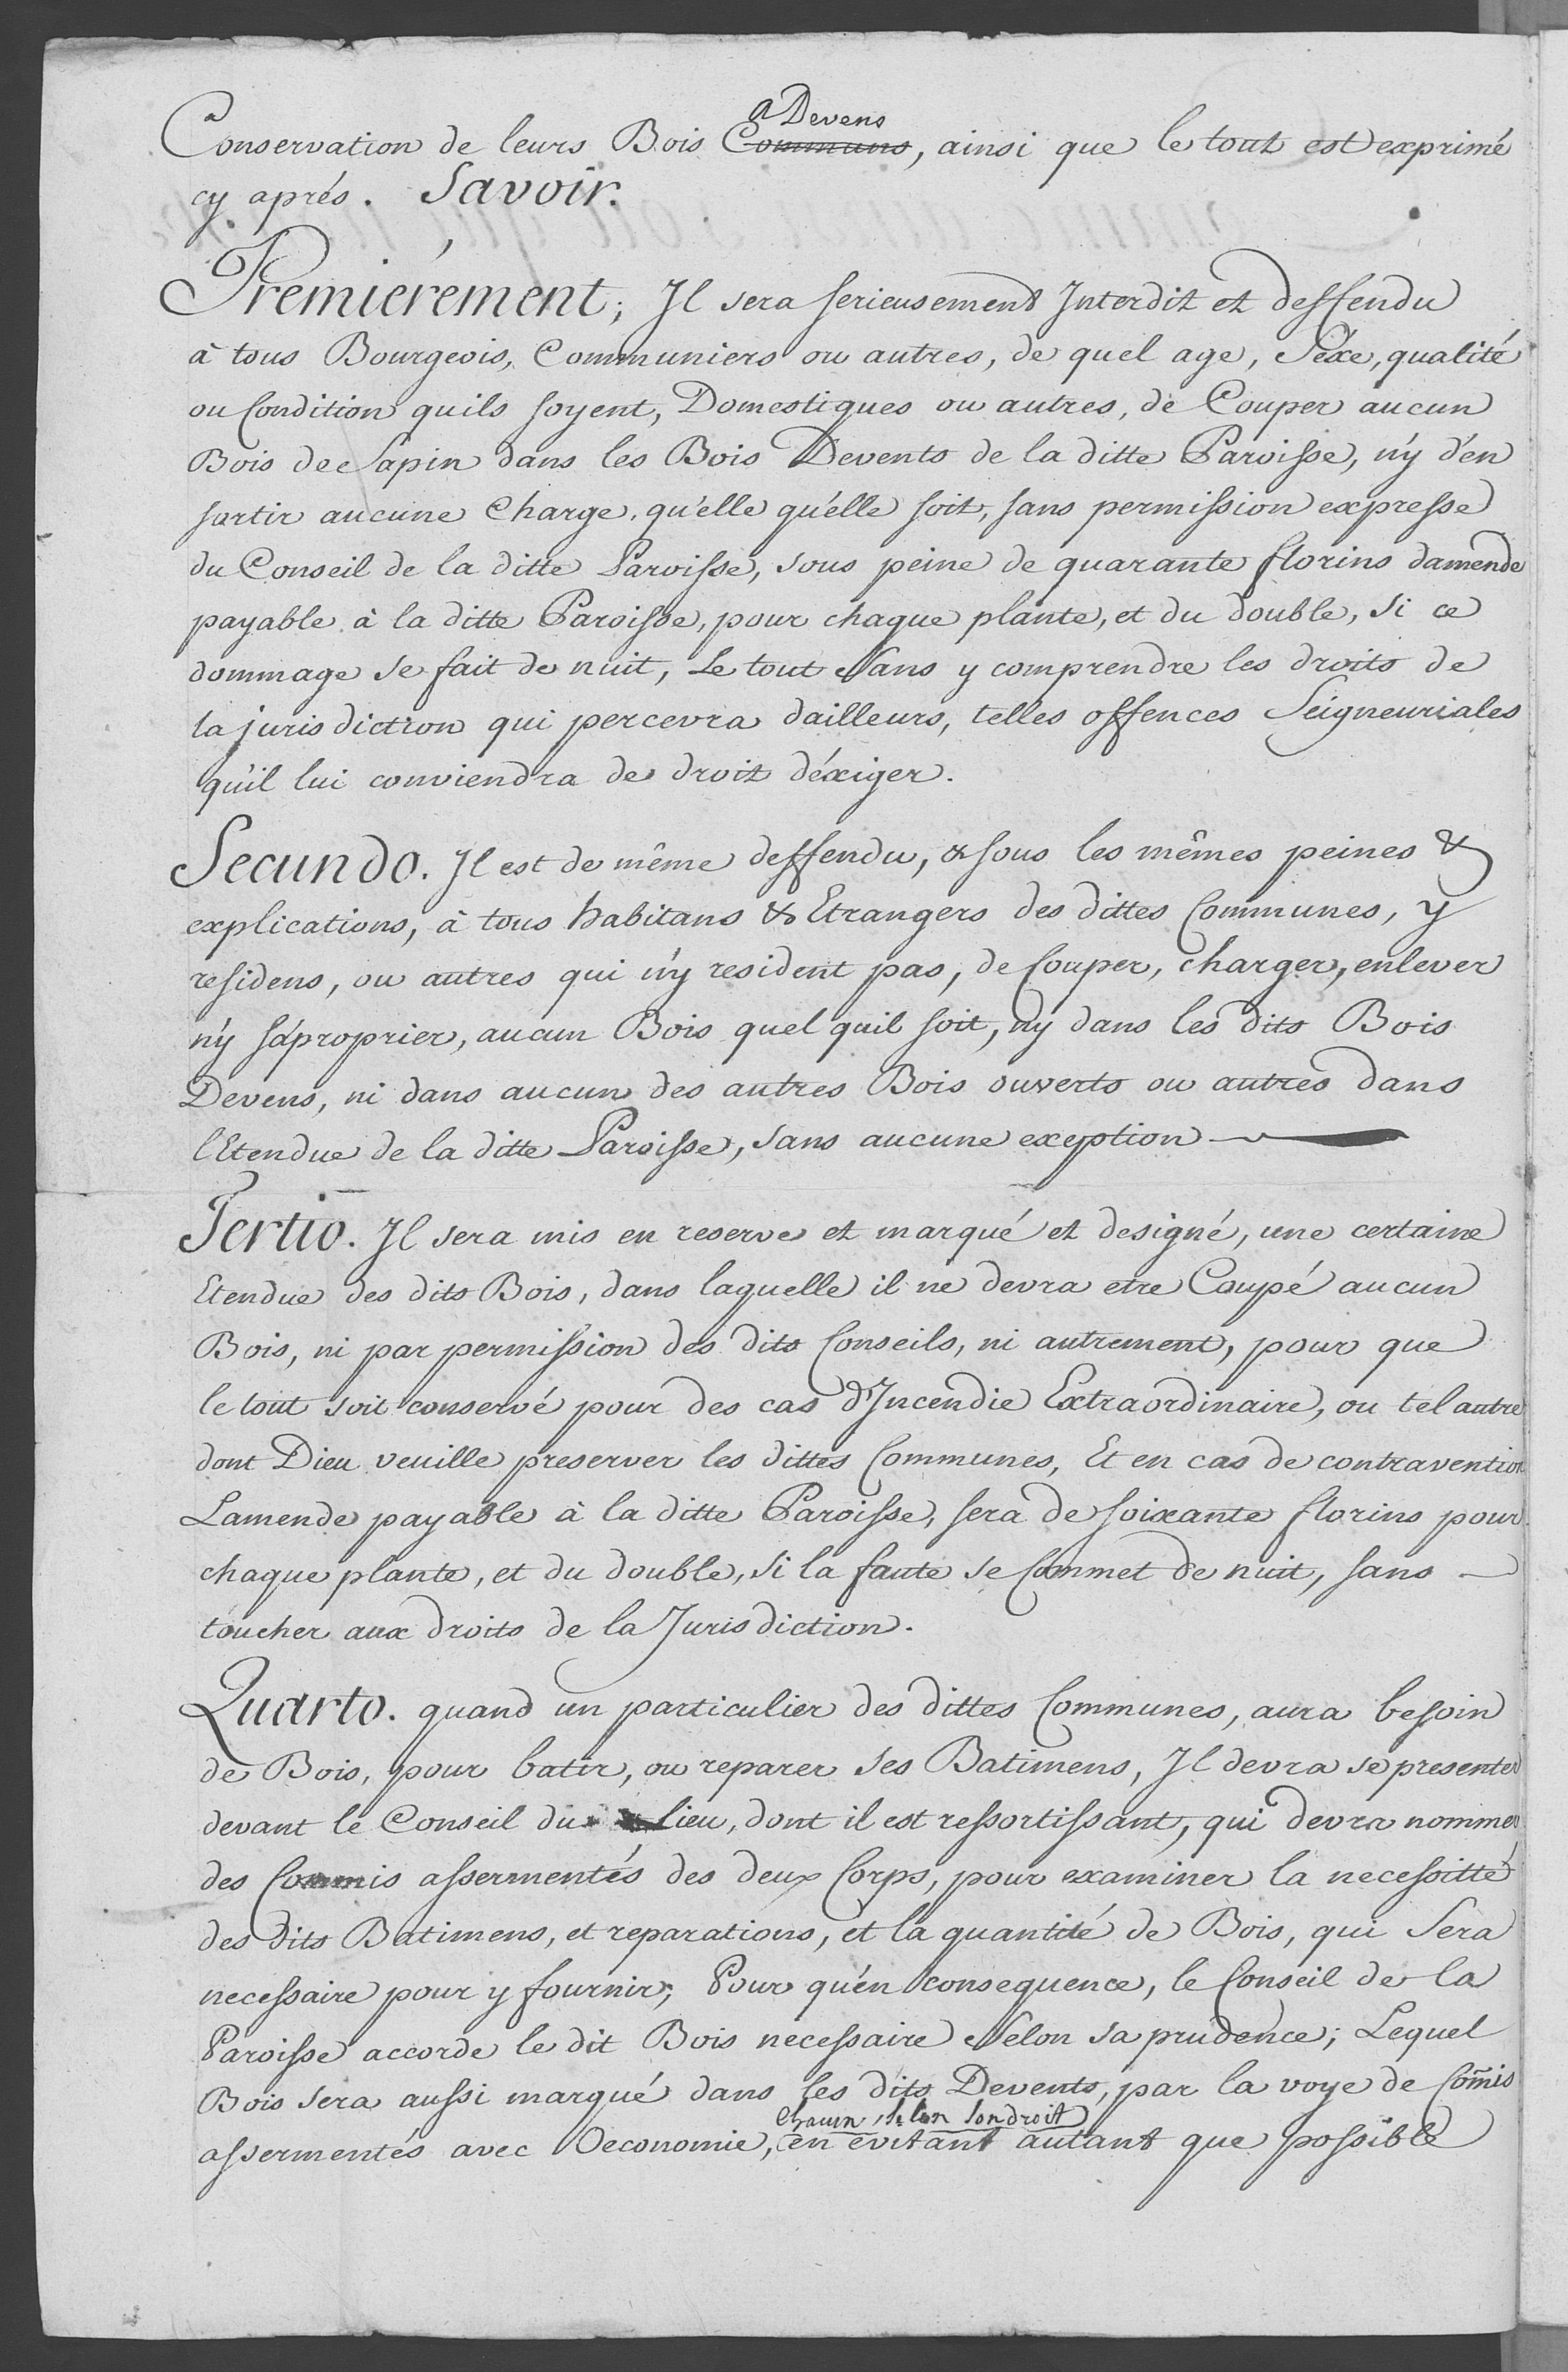 a Devens
Conservation de leurs Bois Communs, ainsi que le tout est exprimé
cy aprés. Savoir.
Premierement; Jl sera serieusement Jnterdit et deffendu
à tous Bourgeois, Communiers ou autres, de quel age, Séxe, qualité
ou Condition quils soyent, Domestiques ou autres, de Couper aucun
Bois de Sapin dans les Bois Devents de la ditte Paroisse, n'y d'en
sortir aucune Charge, qu'elle qu'elle soit, sans permission expresse
du Conseil de la ditte Paroisse, sous peine de quarante florins damende
payable à la ditte Paroisse, pour chaque plante, et du double, si ce
dommage se fait de nuit, Le tout Sans y comprendre les droits de
la jurisdiction qui percevra dailleurs, telles offences Seigneuriales
qu'il lui conviendra de droit d'éxiger.
Secundo. Jl est de même deffendu, & sous les mêmes peines &
explications, à tous habitans & Etrangers des dittes Communes, y
residens, ou autres qui n'y resident pas, de Couper, charger, enlever
n'y s'aproprier, aucun Bois quel quil soit, n'y dans les dits Bois
Devens, ni dans aucun des autres Bois ouverts ou autres dans
l'Etendue de la ditte Paroisse, sans aucune exeption
Tertio. Jl sera mis en reserve et marqué et designé, une certaine
Etendue des dits Bois, dans laquelle il ne devra etre Coupé aucun
Bois, ni par permission des dits Conseils, ni autrement, pour que
le tout soit conservé pour des cas d'Jncendie Extraordinaire, ou tel autre
dont Dieu veuille preserver les dittes Communes, Et en cas de contravention
Lamende payable à la ditte Paroisse, sera de soixante florins pour
chaque plante, et du double, si la faute se Commet de nuit, sans —
toucher aux droits de la Jurisdiction.
Quarto. quand un particulier des dittes Communes, aura besoin
de Bois, pour batir, ou reparer ses Batimens, Jl devra se presenter
devant le Conseil du lieu, dont il est ressortissant, qui devra nommer
des Commis assermentés des deux Corps, pour examiner la necessitté
des dits Batimens, et reparations, et la quantité de Bois, qui Sera
necessaire pour y fournir; Pour qu'en consequence, le Conseil de la
Paroisse accorde le dit Bois necessaire Selon sa prudence; Lequel
Bois sera aussi marqué dans les dits Devents, par la voye de Com̃is
chacun selon son droit
assermentés avec Oeconomie, en evitant autant que possible